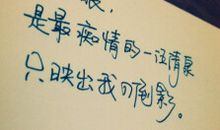 是最痴情的一汪清泉
只映出我的倒影。